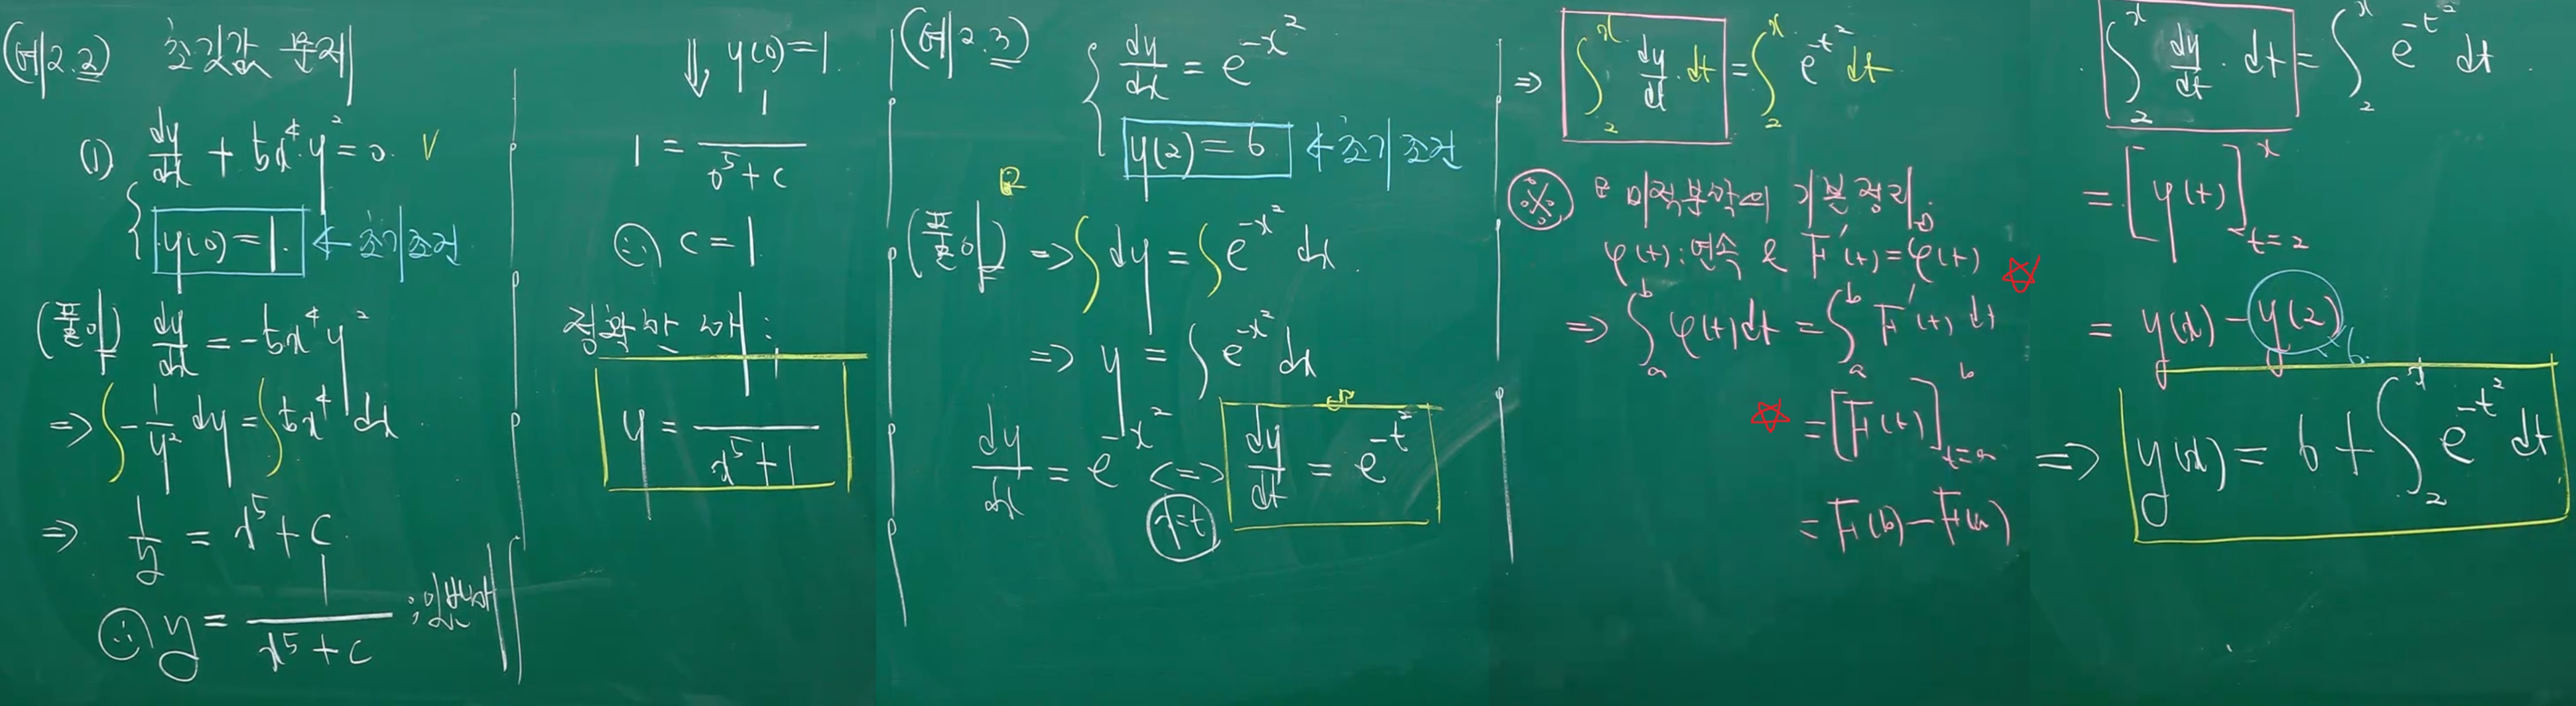 (예 2.2) 초기값 문제
(1) dy/dx + 5x⁴y² = 0. V
y(0) = 1. ← 초기조건
(풀이) dy/dx = -5x⁴y²
⇒ ∫ -1/y² dy = ∫ 5x⁴ dx
⇒ 1/y = x⁵ + C
∴ y = 1/(x⁵ + c) : 일반해
⇓ y(0) = 1.
1 = 1/(0⁵ + c)
∴ c = 1.
정확한 해 :
y = 1/(x⁵ + 1)
(예 2.3) dy/dx = e^(-x²)
y(2) = 6 ← 초기조건
(풀이) ⇒ ∫ dy = ∫ e^(-x²) dx.
⇒ y = ∫ e^(-x²) dx
dy/dx = e^(-x²) <=> dy/dt = e^(-t²)
x=t
⇒ ∫₂ˣ dy/dt · dt = ∫₂ˣ e^(-t²) dt
※ 미적분학의 기본정리
φ(t) : 연속 & F′(t) = φ(t) ☆
⇒ ∫ₐᵇ φ(t)dt = ∫ₐᵇ F′(t) dt
☆ = [F(t)]ᵇ_(t=a)
= F(b) - F(a)
∫₂ˣ dy/dt · dt = ∫₂ˣ e^(-t²) dt.
= [y(t)]ˣ_(t=2)
= y(x) - y(2)
6.
⇒ y(x) = 6 + ∫₂ˣ e^(-t²) dt